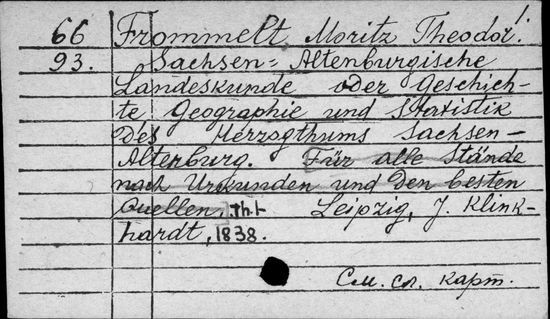 66 Frommelt, Moritz Theodor!
93. Sachsen-Altenburgische
Landeskunde oder Geschich-
te Geographie und Statistik
des Herzogthums Sachsen-
Altenburg. Für alle Stände
nach Urkunden und den besten
Quellen. Th.1 Leipzig, J. Klink-
hardt, 1838.
См. сл. карт.